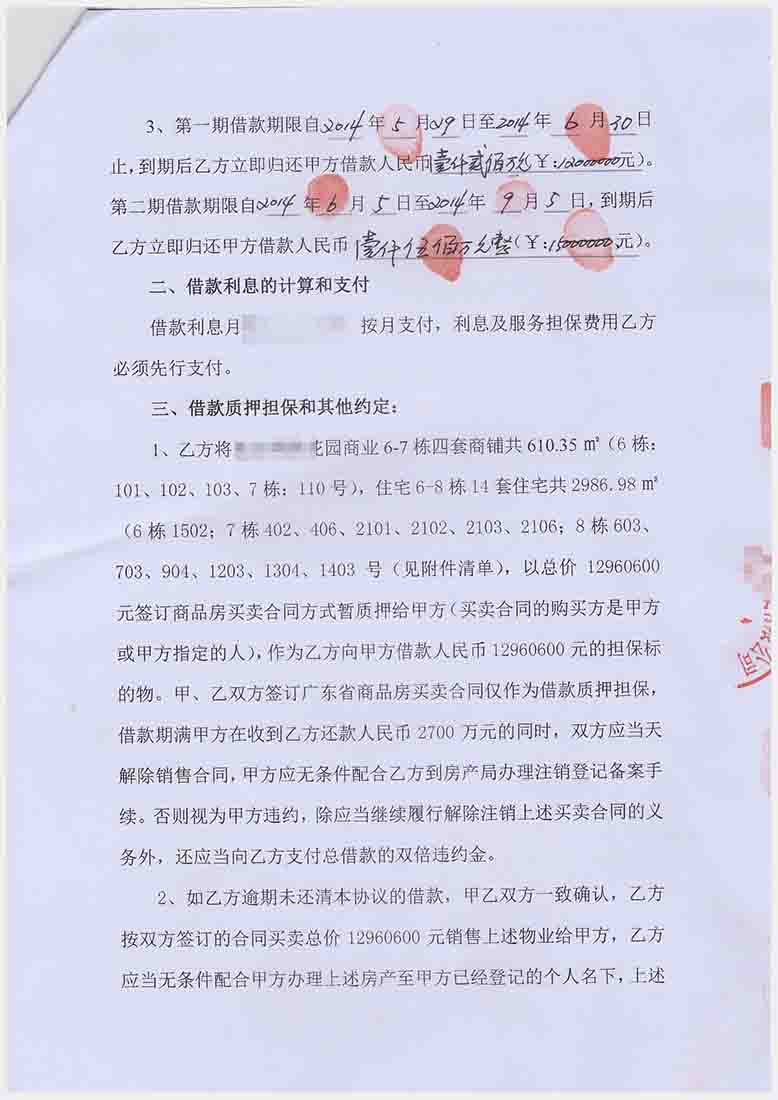 3、第一期借款期限自2014年5月29日至2014年6月30日
止，到期后乙方立即归还甲方借款人民币壹仟贰佰万元（￥：12000000元）。
第二期借款期限自2014年6月5日至2014年9月5日，到期后
乙方立即归还甲方借款人民币壹仟伍佰万元整（￥：15000000元）。
二、借款利息的计算和支付
借款利息月 按月支付，利息及服务担保费用乙方
必须先行支付。
三、借款质押担保和其他约定：
1、乙方将 花园商业6-7栋四套商铺共610.35㎡（6栋：
101、102、103、7栋：110号），住宅6-8栋14套住宅共2986.98㎡
（6栋1502；7栋402、406、2101、2102、2103、2106；8栋603、
703、904、1203、1304、1403号（见附件清单），以总价12960600
元签订商品房买卖合同方式暂质押给甲方（买卖合同的购买方是甲方
或甲方指定的人），作为乙方向甲方借款人民币12960600元的担保标
的物。甲、乙双方签订广东省商品房买卖合同仅作为借款质押担保，
借款期满甲方在收到乙方还款人民币2700万元的同时，双方应当天
解除销售合同，甲方应无条件配合乙方到房产局办理注销登记备案手
续。否则视为甲方违约，除应当继续履行解除注销上述买卖合同的义
务外，还应当向乙方支付总借款的双倍违约金。
2、如乙方逾期未还清本协议的借款，甲乙双方一致确认，乙方
按双方签订的合同买卖总价12960600元销售上述物业给甲方，乙方
应当无条件配合甲方办理上述房产至甲方已经登记的个人名下，上述
公司